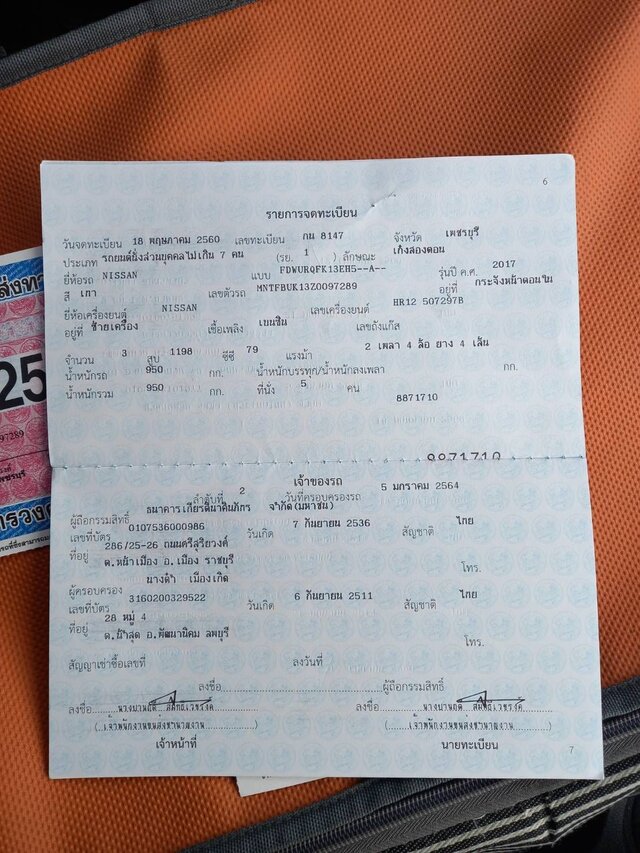 6
รายการจดทะเบียน
วันจดทะเบียน 18 พฤษภาคม 2560 เลขทะเบียน กน 8147 จังหวัด เพชรบุรี
ประเภท รถยนต์นั่งส่วนบุคคลไม่เกิน 7 คน (รย. 1 ) ลักษณะ เก๋งสองตอน
ยี่ห้อรถ NISSAN แบบ FDWURQFK13EH5--A-- รุ่นปี ค.ศ. 2017
สี เทา เลขตัวรถ MNTFBUK13Z0097289 อยู่ที่ กระจังหน้าตอนใน
ยี่ห้อเครื่องยนต์ NISSAN เลขเครื่องยนต์ HR12 507297B
อยู่ที่ ซ้ายเครื่อง เชื้อเพลิง เบนซิน เลขถังแก๊ส
จำนวน 3 สูบ 1198 ซีซี 79 แรงม้า 2 เพลา 4 ล้อ ยาง 4 เส้น
น้ำหนักรถ 950 กก. น้ำหนักบรรทุก/น้ำหนักลงเพลา กก.
น้ำหนักรวม 950 กก. ที่นั่ง 5 คน
8871710
8871710
เจ้าของรถ
ลำดับที่ 2 วันที่ครอบครองรถ 5 มกราคม 2564
ผู้ถือกรรมสิทธิ์ ธนาคารเกียรตินาคินภัทร จำกัด(มหาชน)
เลขที่บัตร 0107536000986 วันเกิด 7 กันยายน 2536 สัญชาติ ไทย
ที่อยู่ 286/25-26 ถนนศรีสุริยวงค์
ต.หน้าเมือง อ.เมือง ราชบุรี โทร.
ผู้ครอบครอง เมืองเกิด
เลขที่บัตร 3160200329522 วันเกิด 6 กันยายน 2511 สัญชาติ ไทย
ที่อยู่ 28 หมู่ 4
ต.น้ำสุด อ.พัฒนานิคม ลพบุรี โทร.
สัญญาเช่าซื้อเลขที่ ลงวันที่
ลงชื่อ ผู้ถือกรรมสิทธิ์
ลงชื่อ ลงชื่อ
(เจ้าพนักงานขนส่งชำนาญงาน) (เจ้าพนักงานขนส่งชำนาญงาน)
เจ้าหน้าที่ นายทะเบียน
7
25